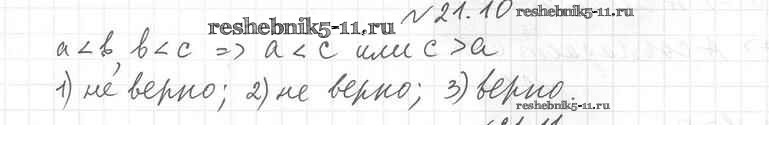 №21.10 reshebnik5-11.ru
reshebnik5-11.ru
a < b, b < c => a < c или c > a
1) не верно; 2) не верно; 3) верно.
reshebnik5-11.ru